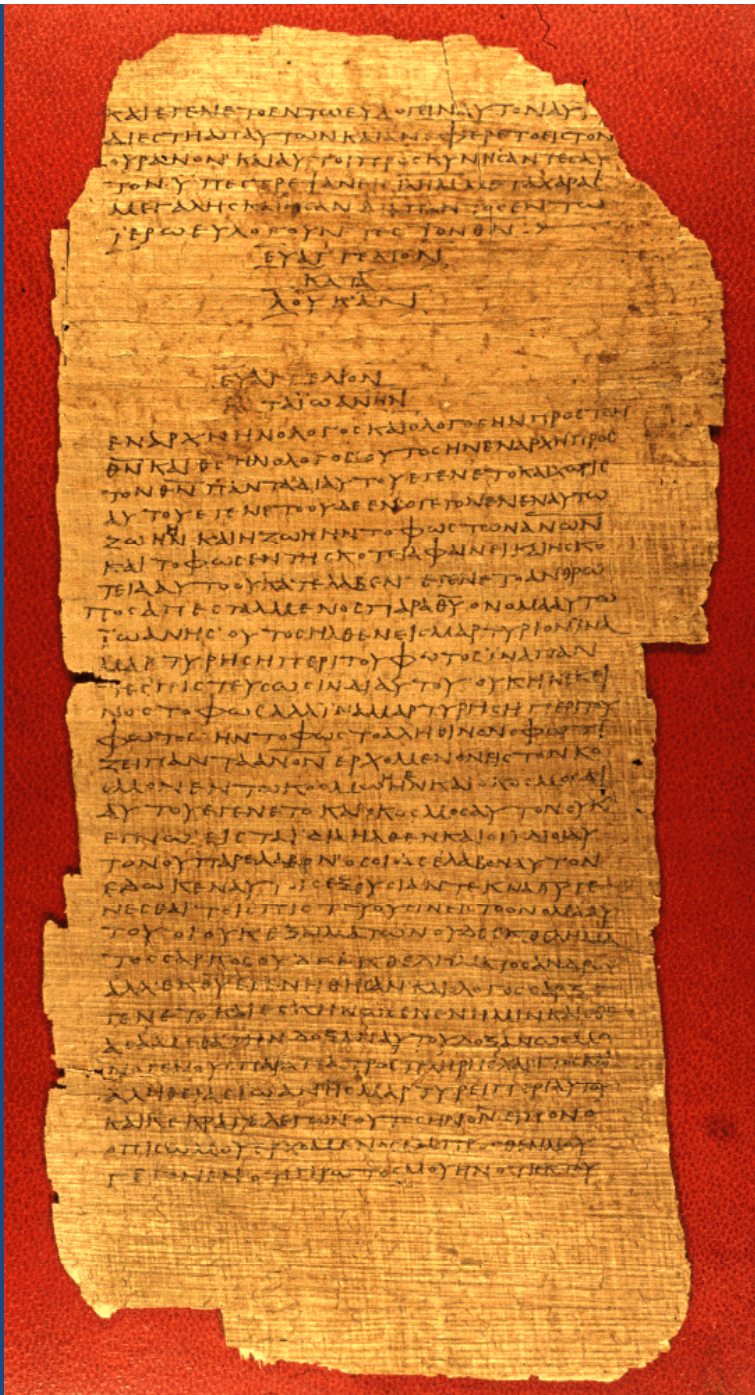 ΚΑΙΕΓΕΝΕΤΟΕΝΤΩΕΥΛΟΓΕΙΝΑΥΤΟΝΑΥ
ΔΙΕϹΤΗΑΠΑΥΤΩΝΚΑΙΑΝΕΦΕΡΕΤΟΕΙϹΤΟΝ
ΟΥΡΑΝΟΝΚΑΙΑΥΤΟΙΠΡΟϹΚΥΝΗϹΑΝΤΕϹΑΥ
ΤΟΝΥΠΕϹΤΡΕΨΑΝΕΙϹΙΗΛΗΜΜΕΤΑΧΑΡΑϹ
ΜΕΓΑΛΗϹΚΑΙΗϹΑΝΔΙΑΠΑΝΤΟϹΕΝΤΩ
ΪΕΡΩΕΥΛΟΓΟΥΝΤΕϹΤΟΝΘ̅Ν̅
ΕΥΑΓΓΕΛΙΟΝ
ΚΑΤΑ
ΛΟΥΚΑΝ
ΕΥΑΓΓΕΛΙΟΝ
ΚΑΤΑΪΩΑΝΗΝ
ΕΝΑΡΧΗΗΝΟΛΟΓΟϹΚΑΙΟΛΟΓΟϹΗΝΠΡΟϹΤΟΝ
Θ̅Ν̅ΚΑΙΘ̅Ϲ̅ΗΝΟΛΟΓΟϹΟΥΤΟϹΗΝΕΝΑΡΧΗΠΡΟϹ
ΤΟΝΘ̅Ν̅ΠΑΝΤΑΔΙΑΥΤΟΥΕΓΕΝΕΤΟΚΑΙΧΩΡΙϹ
ΑΥΤΟΥΕΓΕΝΕΤΟΟΥΔΕΕΝΟΓΕΓΟΝΕΝΕΝΑΥΤΩ
ΖΩΗΗΝΚΑΙΗΖΩΗΗΝΤΟΦΩϹΤΩΝΑ̅Ν̅Ω̅Ν̅
ΚΑΙΤΟΦΩϹΕΝΤΗϹΚΟΤΕΙΑΦΑΙΝΕΙΚΑΙΗϹΚΟ
ΤΕΙΑΑΥΤΟΟΥΚΑΤΕΛΑΒΕΝΕΓΕΝΕΤΟΑΝΘΡΩ
ΠΟϹΑΠΕϹΤΑΛΜΕΝΟϹΠΑΡΑΘ̅Υ̅ΟΝΟΜΑΑΥΤΩ
ΪΩΑΝΗϹΟΥΤΟϹΗΛΘΕΝΕΙϹΜΑΡΤΥΡΙΟΝΪΝΑ
ΜΑΡΤΥΡΗϹΗΠΕΡΙΤΟΥΦΩΤΟϹΪΝΑΠΑΝ
ΤΕϹΠΙϹΤΕΥϹΩϹΙΝΔΙΑΥΤΟΥΟΥΚΗΝΕΚΕΙ
ΝΟϹΤΟΦΩϹΑΛΛΙΝΑΜΑΡΤΥΡΗϹΗΠΕΡΙΤΟΥ
ΦΩΤΟϹΗΝΤΟΦΩϹΤΟΑΛΗΘΙΝΟΝΟΦΩΤΙ
ΖΕΙΠΑΝΤΑΑ̅Ν̅Ο̅Ν̅ΕΡΧΟΜΕΝΟΝΕΙϹΤΟΝΚΟ
ϹΜΟΝΕΝΤΩΚΟϹΜΩΗΝΚΑΙΟΚΟϹΜΟϹΔΙ
ΑΥΤΟΥΕΓΕΝΕΤΟΚΑΙΟΚΟϹΜΟϹΑΥΤΟΝΟΥΚ
ΕΓΝΩΕΙϹΤΑΪΔΙΑΗΛΘΕΝΚΑΙΟΙΪΔΙΟΙΑΥ
ΤΟΝΟΥΠΑΡΕΛΑΒΟΝΟϹΟΙΔΕΕΛΑΒΟΝΑΥΤΟΝ
ΕΔΩΚΕΝΑΥΤΟΙϹΕΞΟΥϹΙΑΝΤΕΚΝΑΘ̅Υ̅ΓΕ
ΝΕϹΘΑΙΤΟΙϹΠΙϹΤΕΥΟΥϹΙΝΕΙϹΤΟΟΝΟΜΑΑΥ
ΤΟΥΟΙΟΥΚΕΞΑΙΜΑΤΩΝΟΥΔΕΕΚΘΕΛΗΜΑ
ΤΟϹϹΑΡΚΟϹΟΥΔΕΕΚΘΕΛΗΜΑΤΟϹΑΝΔΡΟϹ
ΑΛΛΑΕΚΘ̅Υ̅ΕΓΕΝΗΘΗϹΑΝΚΑΙΟΛΟΓΟϹϹΑΡΞΕ
ΓΕΝΕΤΟΚΑΙΕϹΚΗΝΩϹΕΝΕΝΗΜΙΝΚΑΙΕΘΕ
ΑϹΑΜΕΘΑΤΗΝΔΟΞΑΝΑΥΤΟΥΔΟΞΑΝΩϹΜΟ
ΝΟΓΕΝΟΥϹΠΑΡΑΠΑΤΡΟϹΠΛΗΡΗϹΧΑΡΙΤΟϹΚΑΙ
ΑΛΗΘΕΙΑϹΪΩΑΝΗϹΜΑΡΤΥΡΕΙΠΕΡΙΑΥΤΟΥ
ΚΑΙΚΕΚΡΑΓΕΛΕΓΩΝΟΥΤΟϹΗΝΟΝΕΙΠΟΝΟ
ΟΠΙϹΩΜΟΥΕΡΧΟΜΕΝΟϹΕΜΠΡΟϹΘΕΝΜΟΥ
ΓΕΓΟΝΕΝΟΤΙΠΡΩΤΟϹΜΟΥΗΝΟΤΙΕΚΤΟΥ